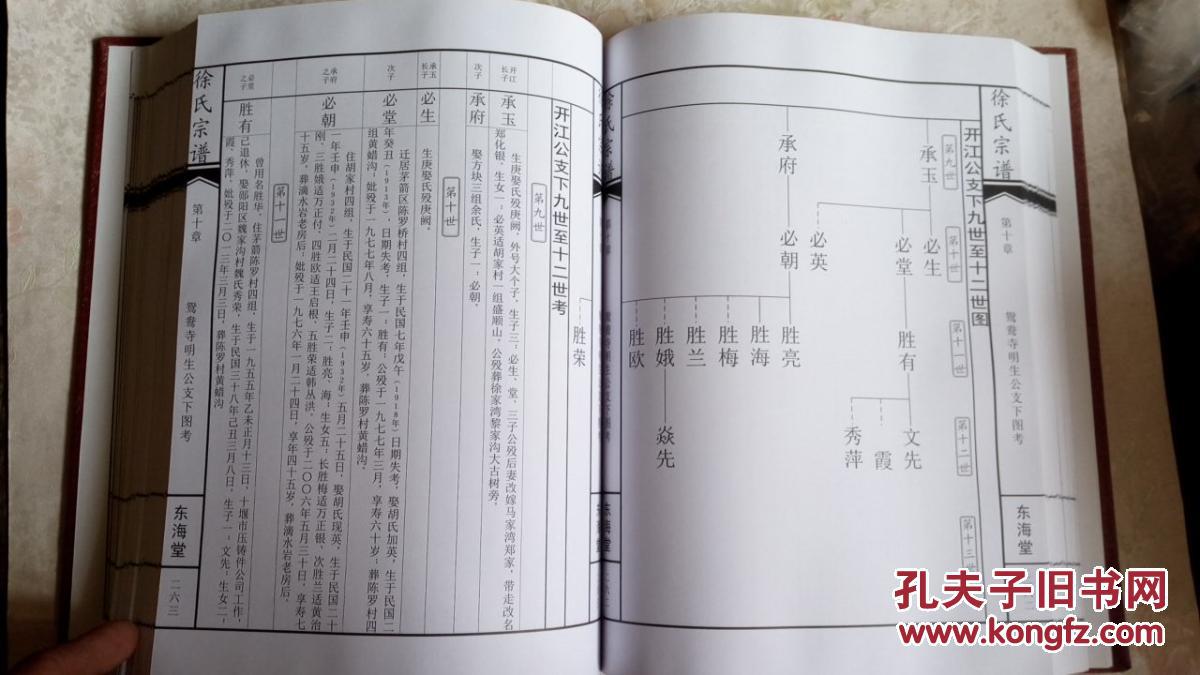 徐氏宗谱
第十章
鸳鸯寺明生公支下图考
东海堂
开江公支下九世至十二世图
第九世
第十世
第十一世
第十二世
第十三世
承玉
承府
必生
必堂
必英
必朝
胜有
胜亮
胜海
胜梅
胜兰
胜娥
胜欧
文先
霞
秀萍
焱先
胜荣
开江公支下九世至十二世考
第九世
开江长子
承玉
生庚娶氏殁庚阙，外号大个子，生子三：必生、堂，三子公殁后妻改嫁马家湾郑家，带走改名
郑化银，生女一：必英适胡家村一组盛顺山，公殁葬徐家湾黎家沟大古树旁，
次子
承府
娶方块三组余氏，生子一：必朝。
第十世
承玉长子
必生
生庚娶氏殁庚阙。
次子
必堂
迁居茅箭区陈罗桥村四组，生于民国七年戊午（1918年）日期失考，娶胡氏加英，生于民国二
年癸丑（1913年），日期失考，生子一：胜有；公殁于一九七七年三月，享寿六十岁；葬陈罗村四
组黄蜡沟；妣殁于一九七七年八月，享寿六十五岁，葬陈罗村黄蜡沟。
承府之子
必朝
住胡家村四组，生于民国二十一年壬申（1932年）五月二十五日，娶胡氏现英，生于民国二十
一年壬申（1932年）一月二十四日，生子二：胜亮、海；生女五：长胜梅适万正银、次胜兰适黄治
刚、三胜娥适万正付、四胜欧适王启根、五胜荣适韩丛洪，公殁于二〇〇六年五月三十日，享寿七
十五岁，葬滴水岩老房后；妣殁于一九七六年一月二十四日，享年四十五岁，葬滴水岩老房后。
第十一世
必堂之子
胜有
曾用名胜华，住茅箭陈罗村四组，生于一九五五年乙未正月十三日，十堰市压铸件公司工作，
已退休，娶郧阳区魏家沟村魏氏秀荣，生于民国三十八年己丑三月八日，生子一：文先；生女二，
霞、秀萍，妣殁于二〇一三年三月三日，葬陈罗村黄蜡沟
徐氏宗谱
第十章
鸳鸯寺明生公支下图考
东海堂
二六三
孔夫子旧书网
www.kongfz.com